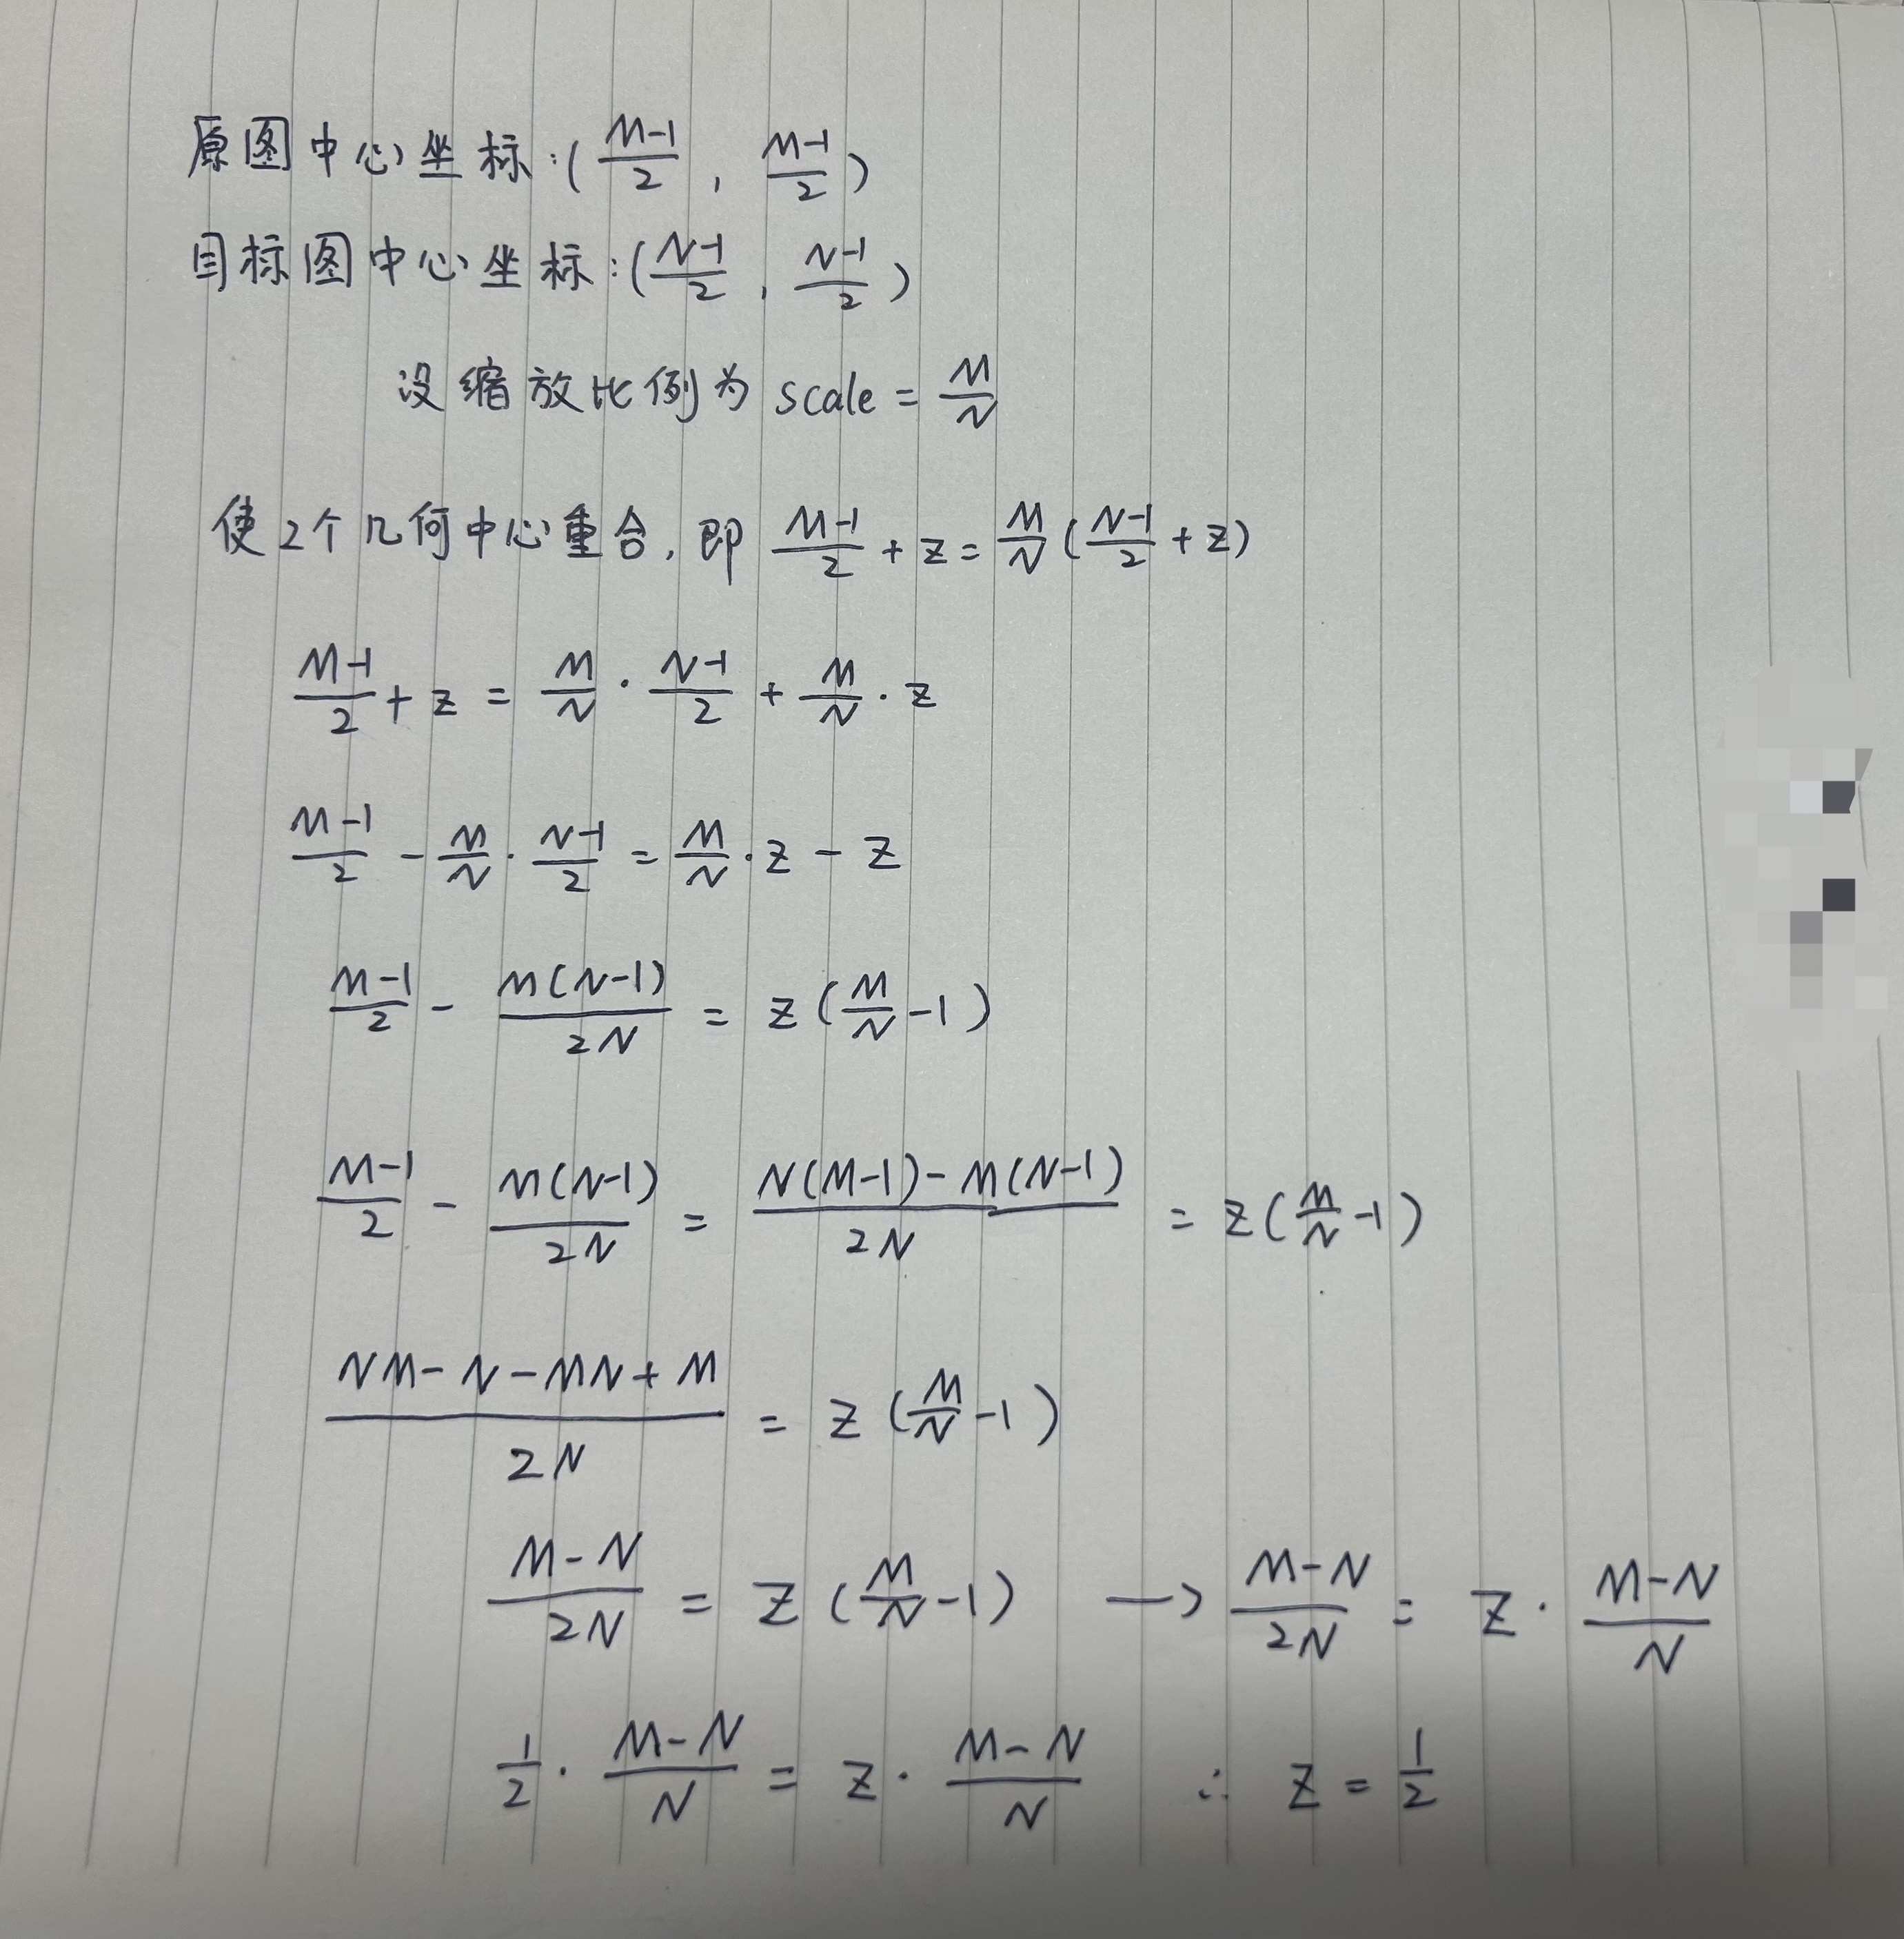 原图中心坐标:(\frac{M-1}{2}, \frac{M-1}{2})
目标图中心坐标:(\frac{N-1}{2}, \frac{N-1}{2})
设缩放比例为 scale = \frac{M}{N}
使2个几何中心重合, 即 \frac{M-1}{2} + z = \frac{M}{N}(\frac{N-1}{2} + z)
\frac{M-1}{2} + z = \frac{M}{N} · \frac{N-1}{2} + \frac{M}{N} · z
\frac{M-1}{2} - \frac{M}{N} · \frac{N-1}{2} = \frac{M}{N} · z - z
\frac{M-1}{2} - \frac{M(N-1)}{2N} = z(\frac{M}{N} - 1)
\frac{M-1}{2} - \frac{M(N-1)}{2N} = \frac{N(M-1)-M(N-1)}{2N} = z(\frac{M}{N} - 1)
\frac{NM-N-MN+M}{2N} = z(\frac{M}{N} - 1)
\frac{M-N}{2N} = z(\frac{M}{N} - 1) → \frac{M-N}{2N} = z · \frac{M-N}{N}
\frac{1}{2} · \frac{M-N}{N} = z · \frac{M-N}{N} ∴ z = \frac{1}{2}